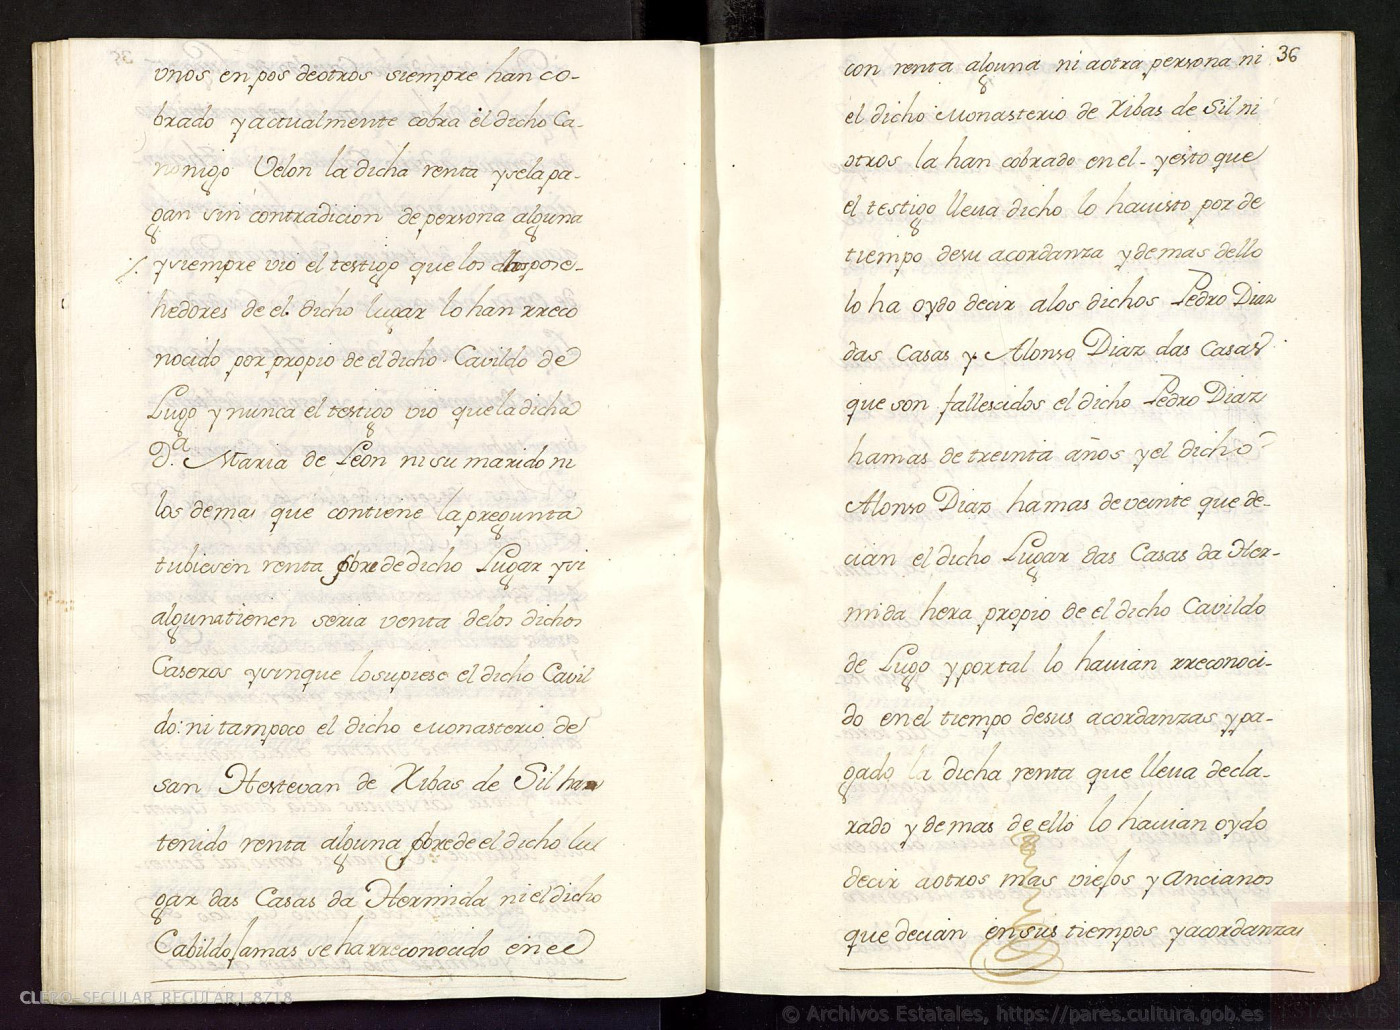 vnos, en pos deotros siempre han co-
brado y actualmente cobra el dicho Ca-
nonigo Velon la dicha renta y sela pa-
gan sin contradicion de persona alguna
y siempre vio el testigo que los dhos pose-
hedores de el dicho lugar lo han rreco
nocido por propio de el dicho Cavildo de
Lugo y nunca el testigo vio que la dicha
D.ª Maria de Leon ni su marido ni
los demas que contiene la pregunta
tubiesen renta sobre de dicho Lugar y si
alguna tienen seria venta delos dichos
Caseros y sinque lo supiese el dicho Cavil
do: ni tampoco el dicho Monasterio de
san Hestevan de Ribas de Sil han
tenido renta alguna sobre de el dicho lu
gar das Casas da Hermida ni el dicho
Cabildo jamas se ha rreconocido en el
36
con renta alguna ni a otra persona ni
el dicho Monasterio de Ribas de Sil ni
otros la han cobrado en el - y esto que
el testigo lleua dicho lo ha visto por de
tiempo de su acordanza y demas dello
lo ha oydo decir a los dichos Pedro Diaz
das Casas y Alonso Diaz das Casas
que son fallescidos el dicho Pedro Diaz
hamas de treinta años y el dicho
Alonso Diaz hamas de veinte que de-
cian el dicho Lugar das Casas da Her-
mida hera propio de el dicho Cavildo
de Lugo y por tal lo hauian rreconoci-
do en el tiempo de sus acordanzas y pa-
gado la dicha renta que lleua decla-
rado y demas de ello lo hauian oydo
decir a otros mas viejos y ancianos
que decian en sus tiempos y acordanzas
CLERO-SECULAR_REGULAR,L.8718
© Archivos Estatales, https://pares.cultura.gob.es
ARCHIVOS
ESTATALES